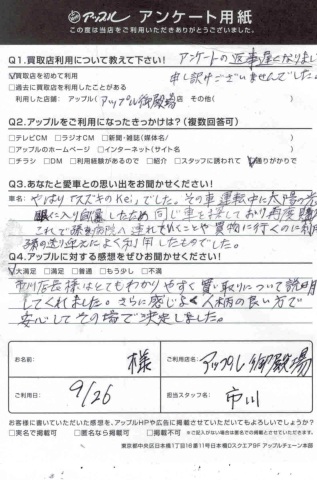 アップル アンケート用紙
この度は当店をご利用いただきありがとうございました。
Q1.買取店利用について教えて下さい!
アンケートの返事遅くなりまし
申し訳ございませんでした。
☑買取店を初めて利用
□過去に買取店を利用したことがある
利用した店舗: アップル(アップル御殿場)店 その他( )
Q2.アップルをご利用になったきっかけは?(複数回答可)
□テレビCM □ラジオCM □新聞・雑誌(媒体名/ )
□アップルのホームページ □インターネット(サイト名 )
□チラシ □DM □利用経験があるので □紹介 □スタッフに誘われて ☑通りがかりで
Q3.あなたと愛車との思い出をお聞かせください!
車名: やはりスズキのKeiでした。その車運転中に太陽の光
眼に入り自爆したため同じ車を探しており再度購
これで孫を病院へ連れていくことや買物に行くのに利
孫の送り迎えによく利用したものでした。
Q4.アップルに対する感想をぜひお聞かせください!
☑大満足 □満足 □普通 □もう少し □不満
市川店長様はとてもわかりやすく買い取りについて説明
してくれました。さらに感じよく人柄の良い方で
安心してその場で決定しました。
お名前: 様
ご利用店名: アップル御殿場
ご利用日: 9/26
担当スタッフ名: 市川
お客様に書いていただいた感想を、アップルHPや広告に掲載させていただいてもよろしいでしょうか?
□実名で掲載可 □匿名なら掲載可 □掲載不可 ※ご記入がない場合は匿名での掲載とさせていただきます。
東京都中央区日本橋1丁目16番11号日本橋Dスクエア9F アップルチェーン本部